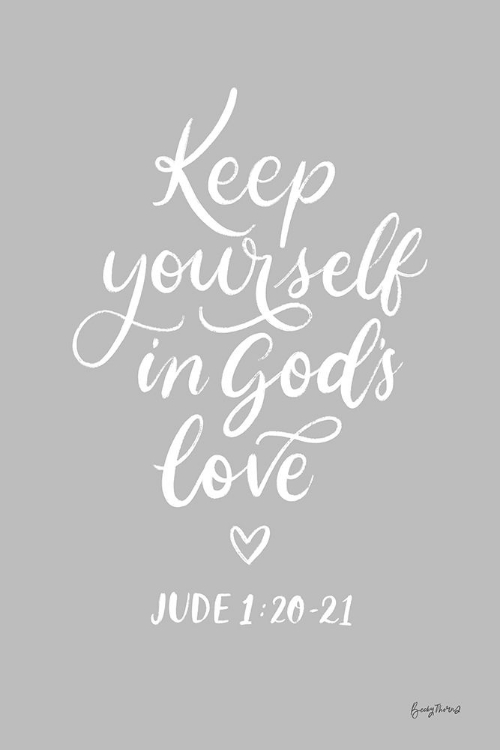 Keep
yourself
in God's
love
JUDE 1:20-21
Becky Thorns